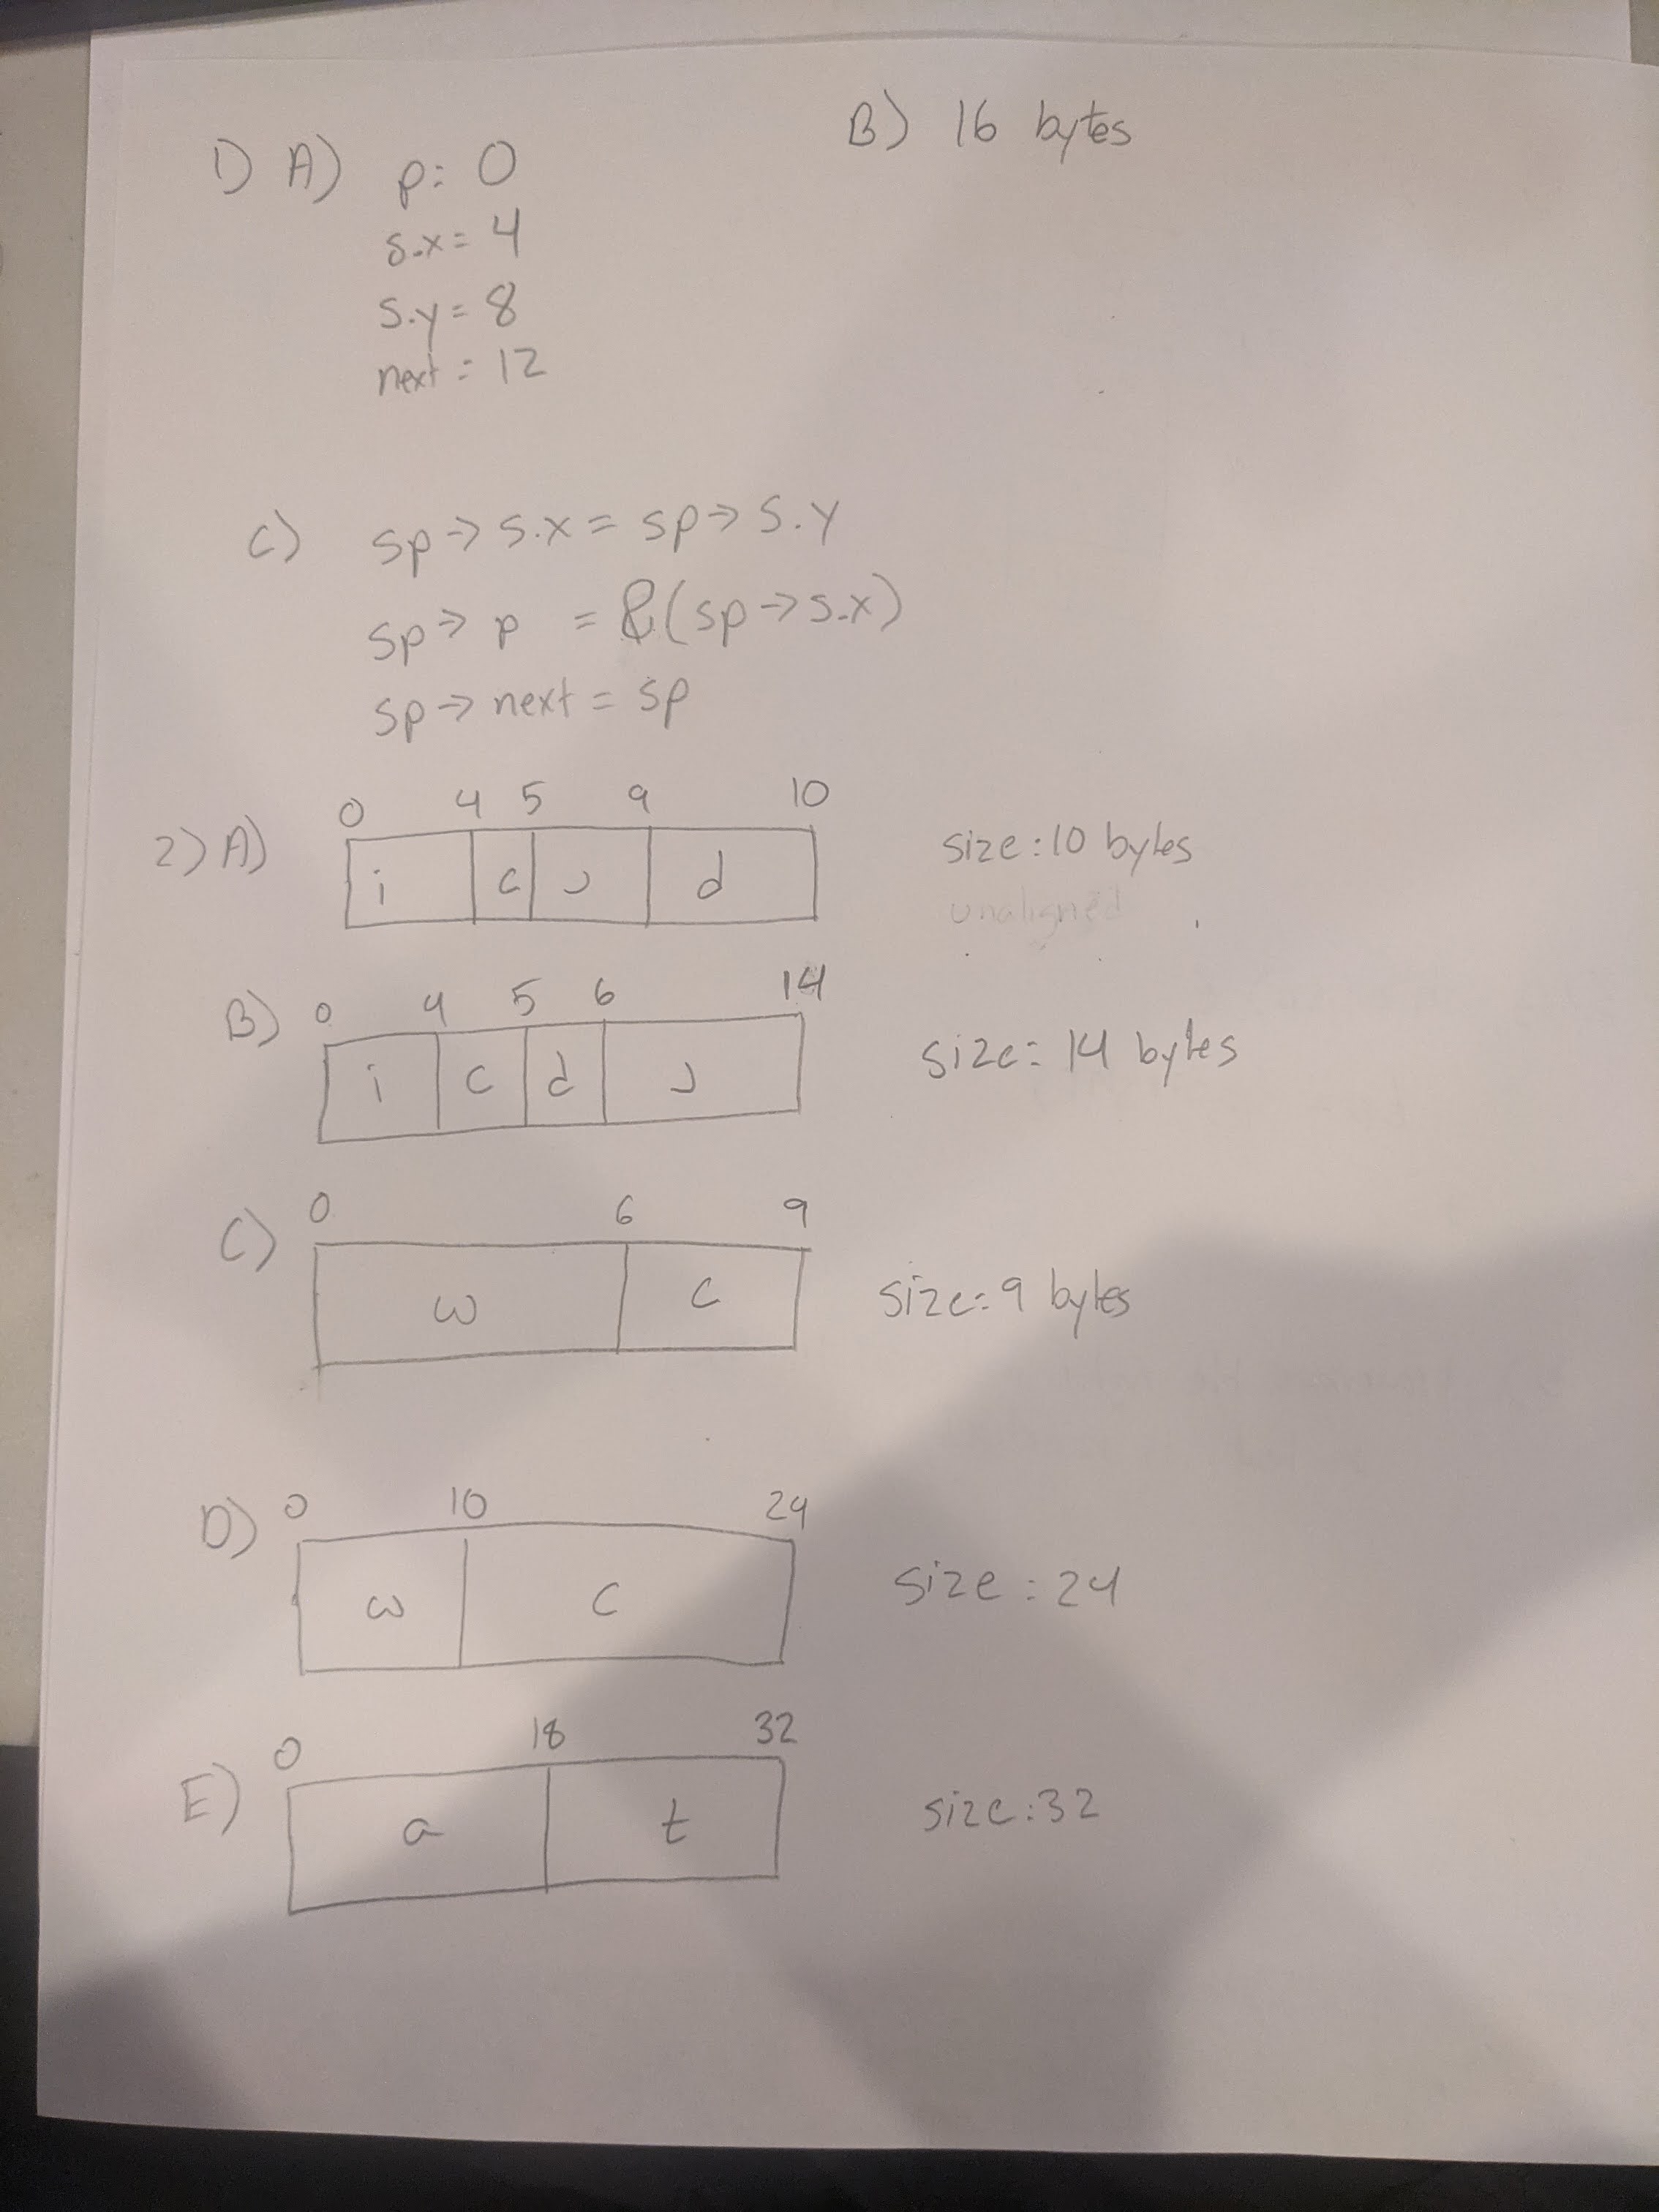 1) A) p: 0
B) 16 bytes
s.x= 4
s.y= 8
next: 12
C) sp->s.x= sp->s.y
sp->p = &(sp->s.x)
sp->next= sp
2) A) 0 4 5 9 10
i c J d
size:10 bytes
unaligned
B) 0 4 5 6 14
i c d J
size: 14 bytes
C) 0 6 9
w c
size: 9 bytes
D) 0 10 24
w c
size: 24
E) 0 18 32
a t
size:32